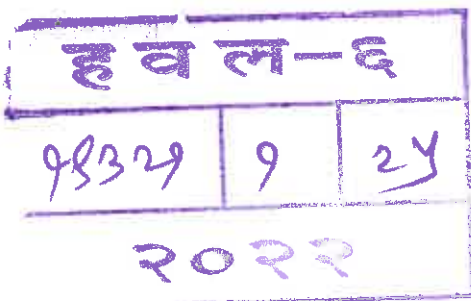 ह व ल-६
१९३२१ १ २५
२०२२